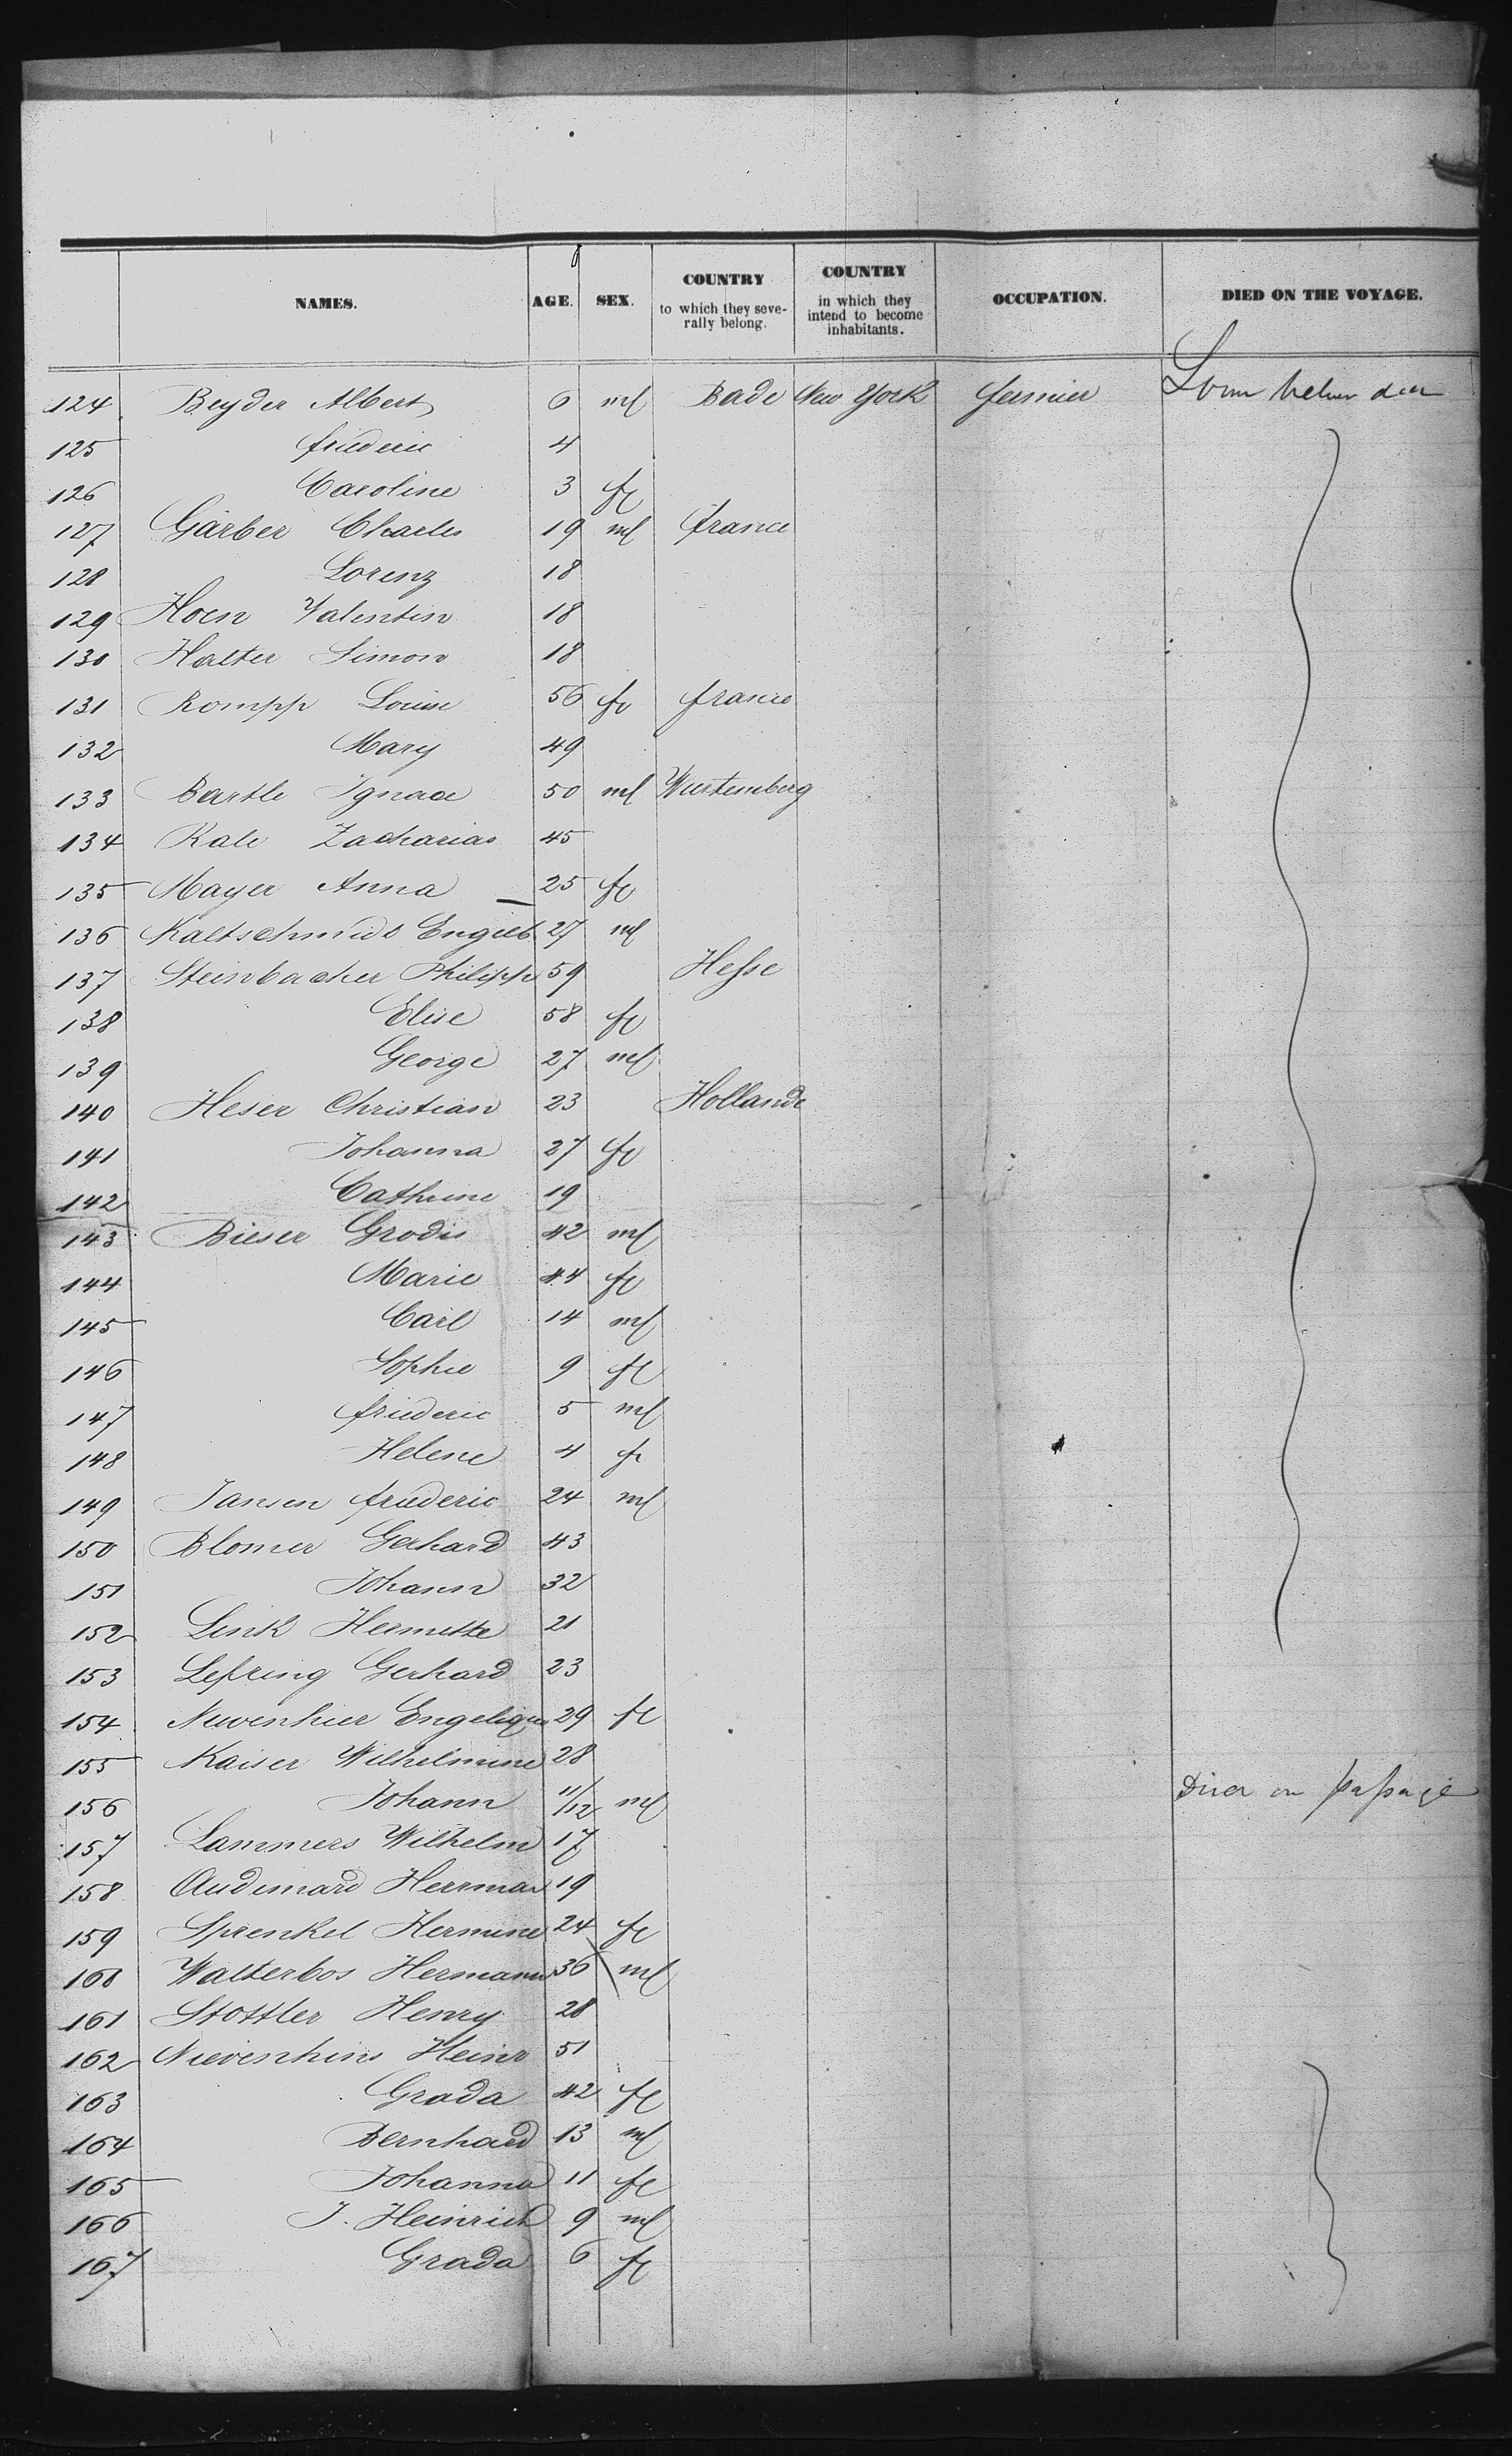 NAMES. AGE. SEX. COUNTRY to which they severally belong. COUNTRY in which they intend to become inhabitants. OCCUPATION. DIED ON THE VOYAGE.
124 Beyder Albert 6 ml Bade New York fermier
125 friederic 4
126 Caroline 3 fe
127 Gärber Charles 19 ml france
128 Lorenz 18
129 Hoen Valentin 18
130 Halter Simon 18
131 Rompp Louise 56 fe france
132 Mary 49
133 Bartle Ignace 50 ml Wurtemberg
134 Kale Zacharias 45
135 Mayer Anna 25 fe
136 Kaltschmid Engelb 27 ml
137 Steinbacher Philipp 59 Hesse
138 Elise 58 fe
139 George 27 ml
140 Heser Christian 23 Hollande
141 Johanna 27 fe
142 Cathrine 19
143 Bieser Grodis 42 ml
144 Marie 44 fe
145 Carl 14 ml
146 Sophie 9 fe
147 friederic 5 ml
148 Helene 4 fe
149 Jansen friederic 24 ml
150 Blomer Gerhard 43
151 Johann 32
152 Link 21
153 Gerhard 23
154 29 fe
155 Kaiser Wilhelmine 28
156 Johann 11/12 ml Died on passage
157 Lammers Wilhelm 17
158 Audimard Herrman 19
159 Sprenkel Hermine 24 fe
160 Walterbos Hermann 36 ml
161 Stottler Henry 28
162 Nievenhins Heinr 51
163 Grada 42 fe
164 Bernhard 13 ml
165 Johanna 11 fe
166 J. Heinrich 9 ml
167 Grada 6 fe